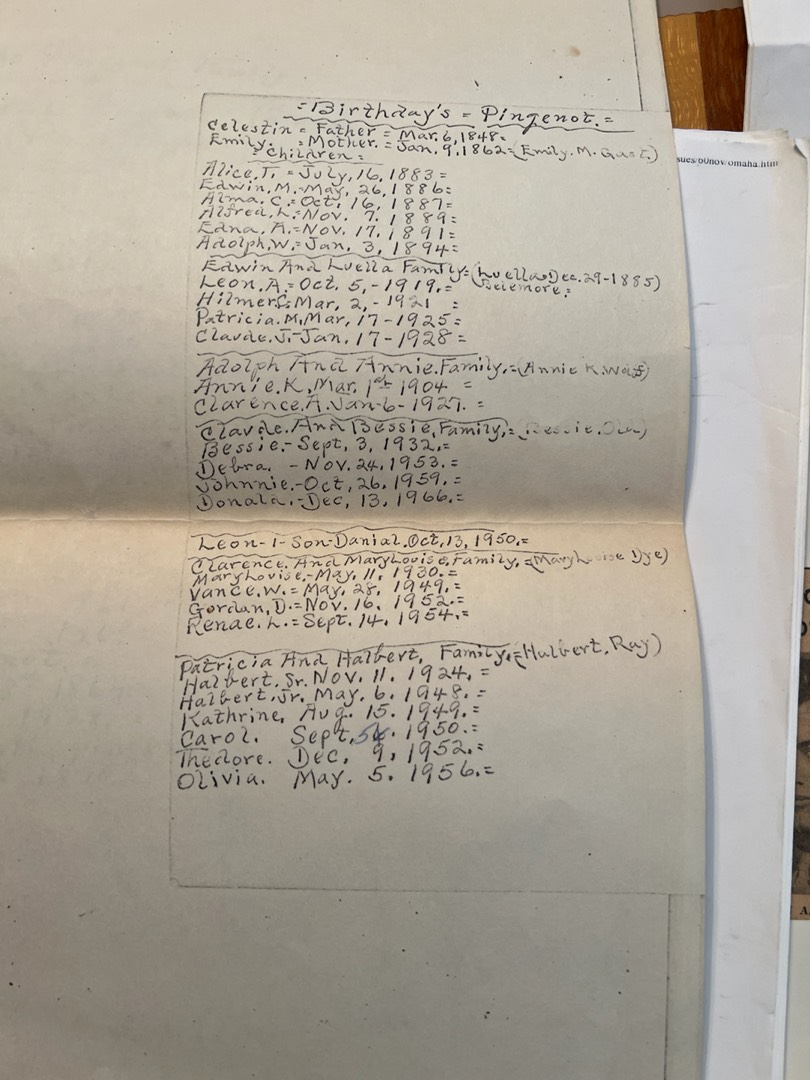 =Birthday's = Pingenot.=
Celestin = Father = Mar. 6, 1848=
Emily. = Mother. = Jan. 9, 1862=(Emily. M. Gast.)
= Children =
Alice. J. = July, 16, 1883 =
Edwin, M.-May, 26, 1886=
Alma. C.=Oct, 16, 1887=
Alfred, L.=Nov. 7. 1889=
Edna, A.=Nov. 17, 1891=
Adolph, W.= Jan, 3, 1894=
Edwin And Luella Family=(Luella=Dec. 29-1885)
Leon. A.= Oct, 5,-1919.=
Hilmer, C. Mar, 2,- 1921 =
Patricia. M. Mar, 17-1925=
Claude. J.-Jan, 17-1928=
Adolph And Annie. Family,=(Annie K.
Annie. K, Mar. 1st 1904 =
Clarence. A. Jan-6-1927. =
Claude. And Bessie, Family,=(Bessie.
Bessie.- Sept, 3, 1932,=
Debra. - Nov. 24, 1953.=
Johnnie.-Oct, 26, 1959.=
Donald.-Dec, 13, 1966.=
Leon-1-Son-Danial. Oct, 13, 1950.=
Clarence. And MaryLouise, Family, =(MaryLouise Dye)
MaryLouise,-May, 11, 1930.=
Vance. W.= May, 28, 1949,=
Gordan, D.=Nov. 16, 1952.=
Renae. L.=Sept. 14, 1954.=
Patricia And Halbert, Family,=(Halbert, Ray)
Halbert, Sr. Nov. 11. 1924, =
Halbert, Jr. May. 6. 1948. =
Kathrine, Aug. 15. 1949. =
Carol. Sept, 1950.=
Thedore. Dec, 9, 1952.=
Olivia. May. 5. 1956.=
sues/00nov/omaha.htm
A.